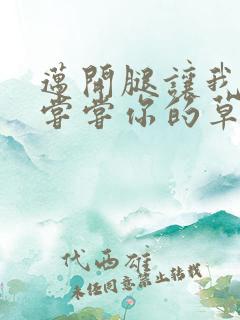 邁開腿讓我
嘗嘗你的草
代西雄
未經同意禁止轉載